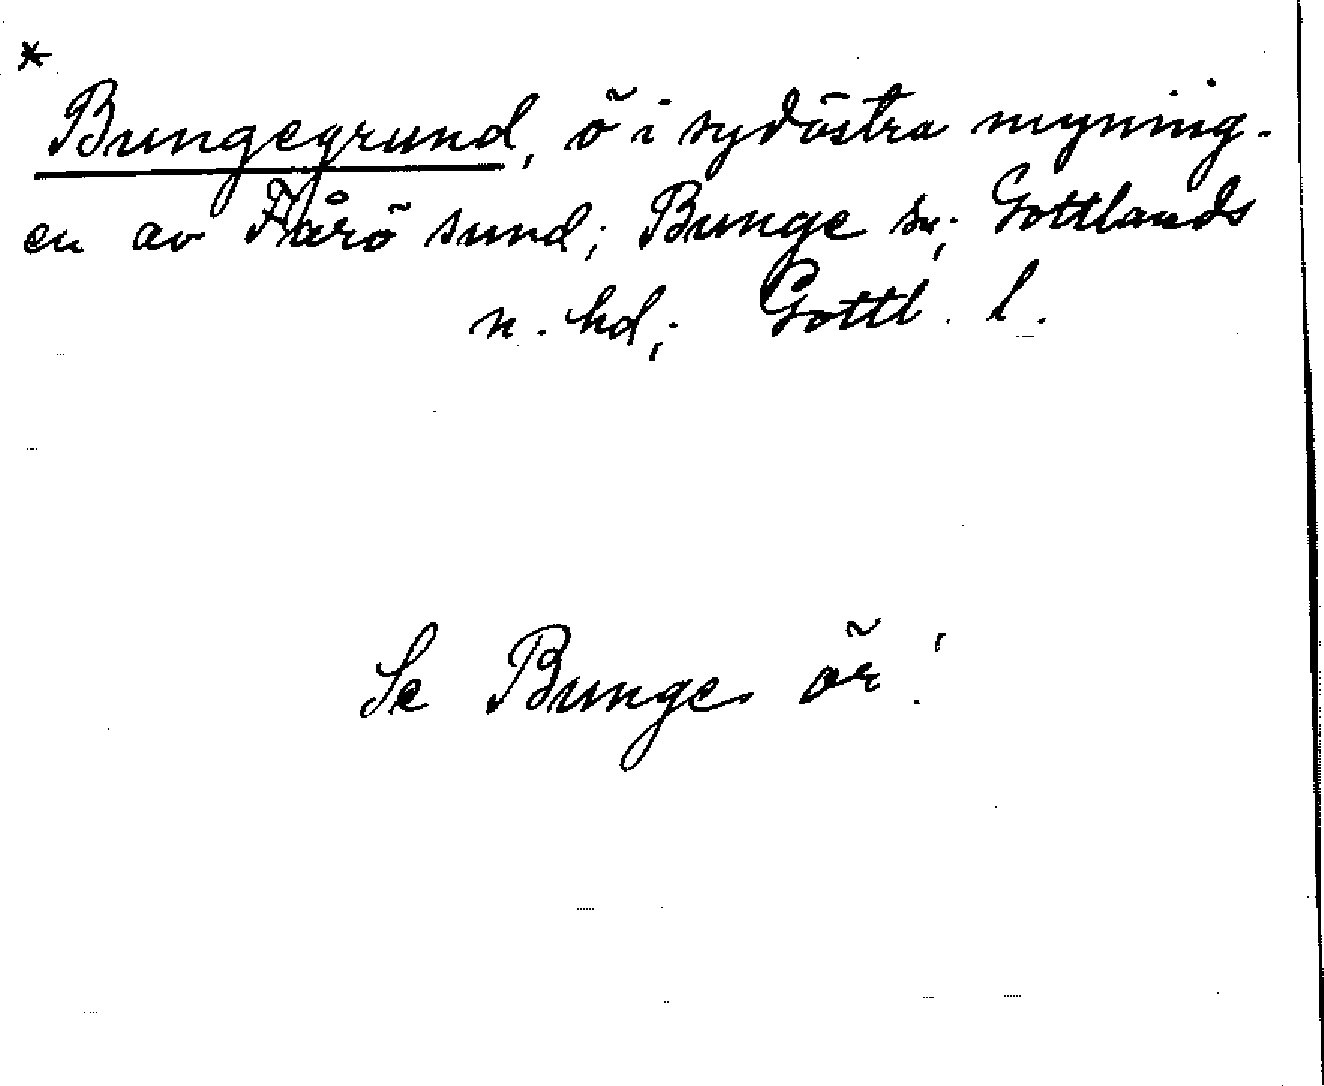 *
Bungegrund, ö i sydöstra mynning-
en av Fårö sund; Bunge sn; Gottlands
n. hd; Gottl. l.
Se Bunge ör!